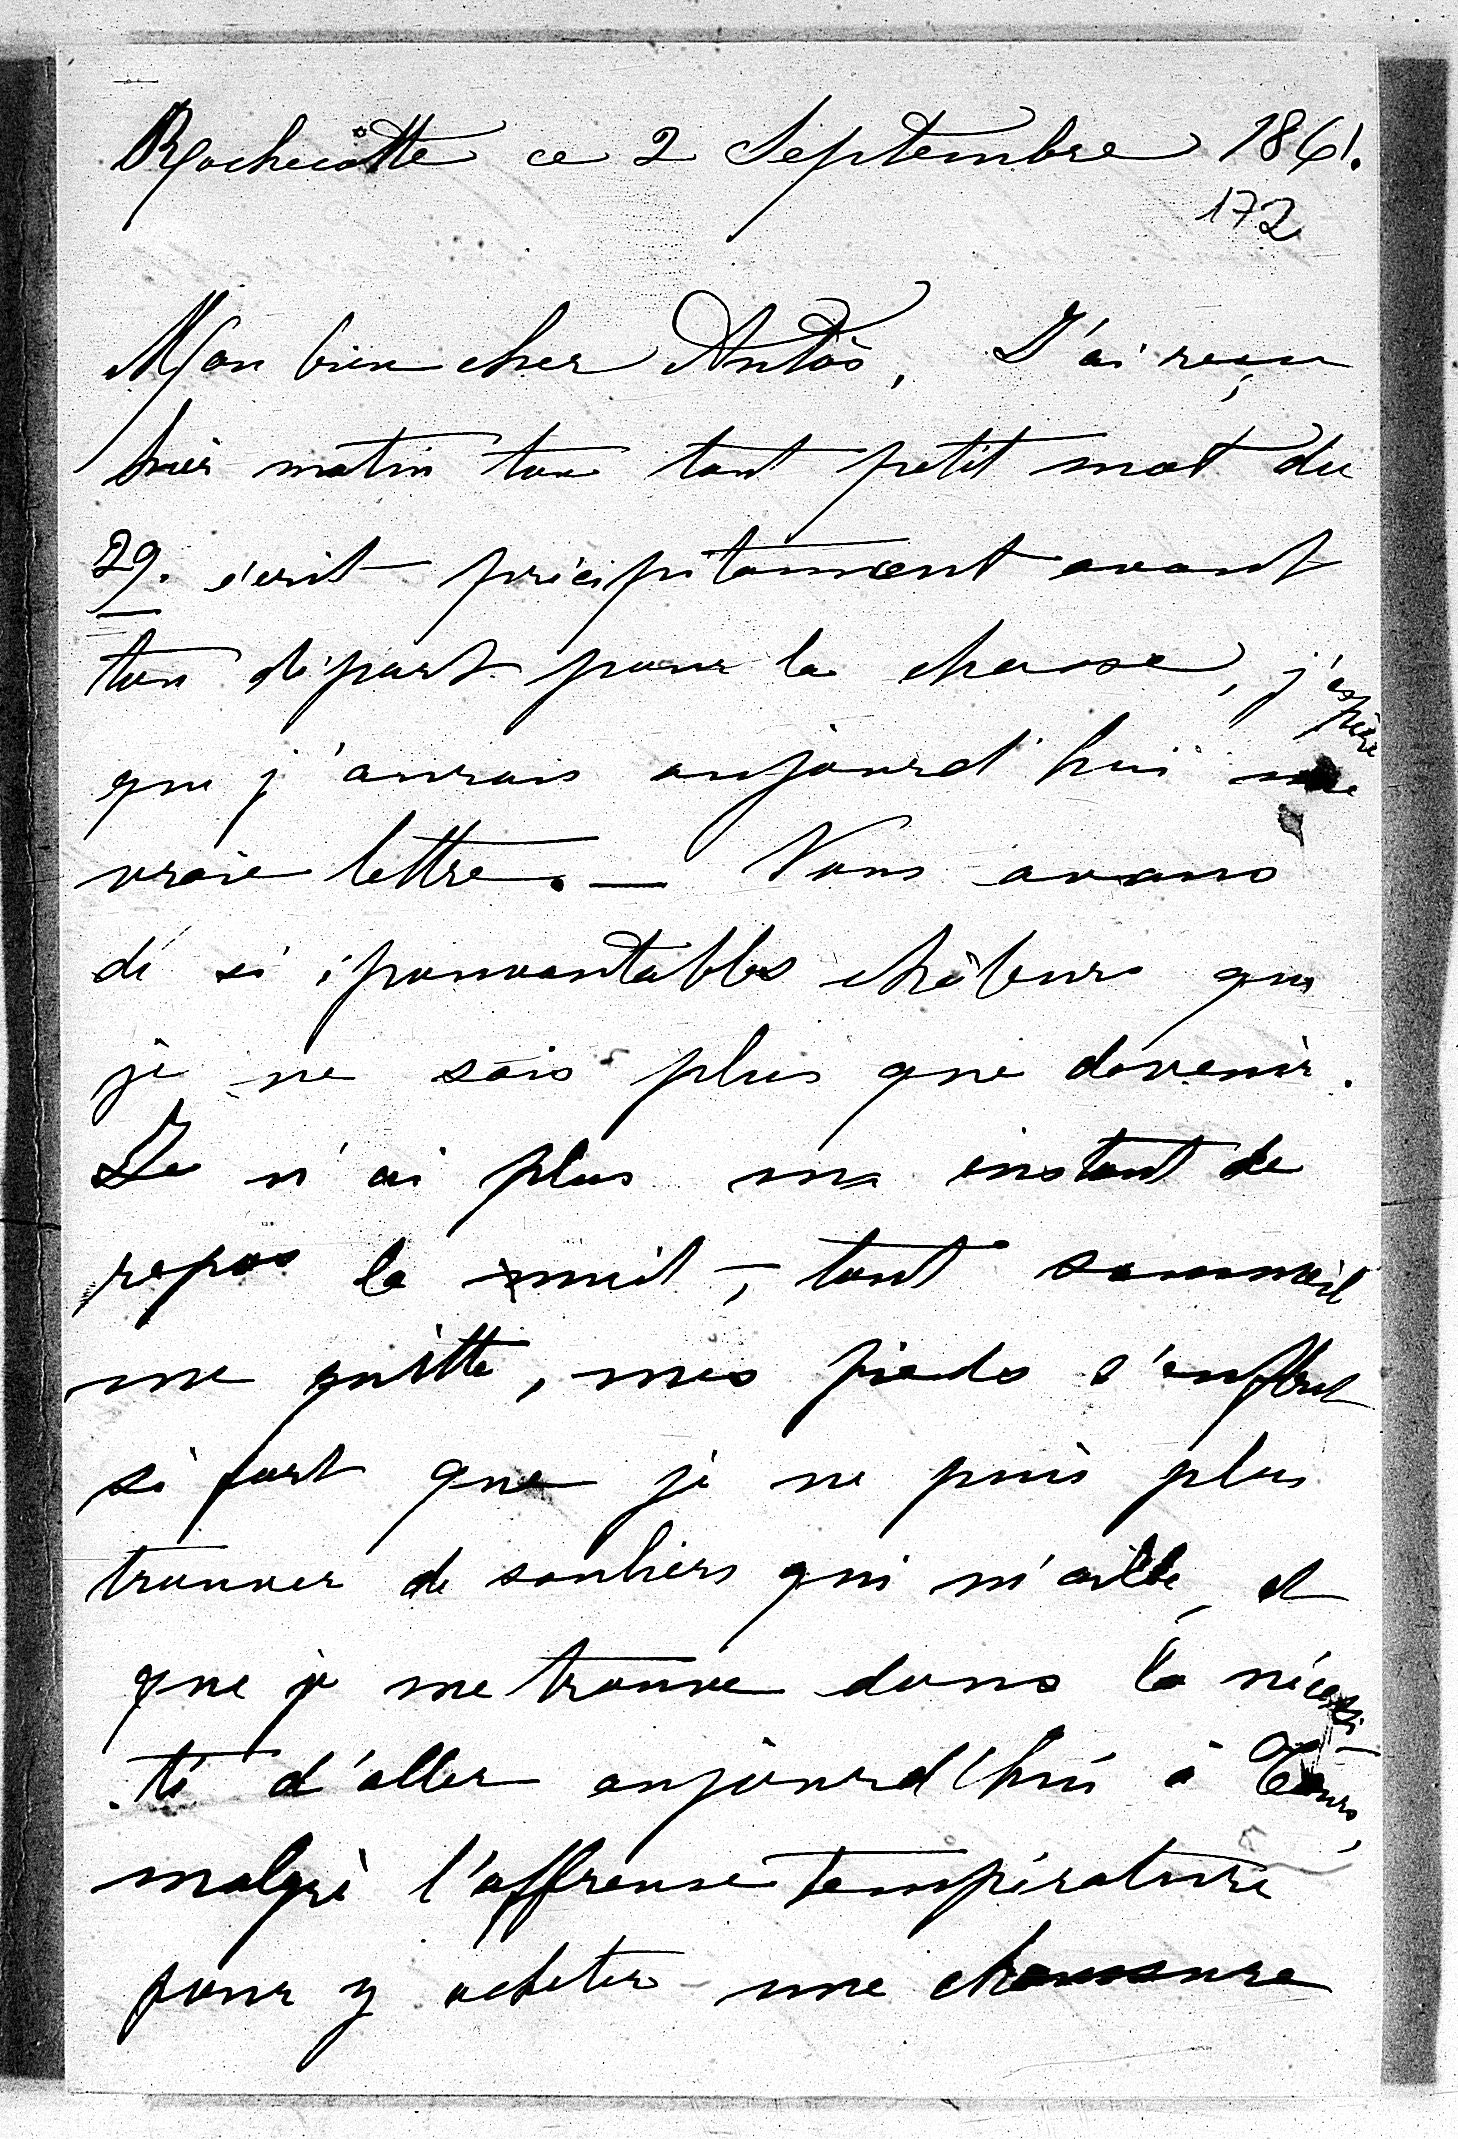 Rochecotte ce 2 Septembre 1861.
172
Mon bien cher Antos, J'ai reçu
hier matin ton tout petit mot du
29. écrit précipitamment avant
ton départ pour la chasse, j'espère
que j'aurais aujourd'hui une
vraie lettre. — Nous avons
dé si épouvantables châleurs que
je ne sais plus que devenir.
Je n'ai plus un instant de
repos la nuit —, tout sommeil
me quitte, mes pieds s'enflent
si fort que je ne puis plus
trouver de souliers qui m'aille, et
que je me trouve dans la nécessi-
té d'aller aujourd'hui à Tours,
malgré l'affreuse température
pour y acheter une chaussure